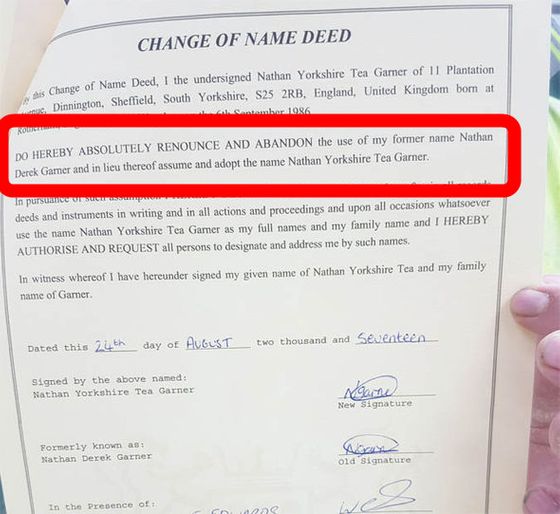 CHANGE OF NAME DEED
this Change of Name Deed, I the undersigned Nathan Yorkshire Tea Garner of 11 Plantation
Dinnington, Sheffield, South Yorkshire, S25 2RB, England, United Kingdom born at
September 1986
DO HEREBY ABSOLUTELY RENOUNCE AND ABANDON the use of my former name Nathan
Derek Garner and in lieu thereof assume and adopt the name Nathan Yorkshire Tea Garner.
In pursuance of such
deeds and instruments in writing and in all actions and proceedings and upon all occasions whatsoever
use the name Nathan Yorkshire Tea Garner as my full names and my family name and I HEREBY
AUTHORISE AND REQUEST all persons to designate and address me by such names.
In witness whereof I have hereunder signed my given name of Nathan Yorkshire Tea and my family
name of Garner.
Dated this 24th day of AUGUST two thousand and Seventeen
Signed by the above named:
Nathan Yorkshire Tea Garner
New Signature
Formerly known as:
Nathan Derek Garner
Old Signature
In the Presence of: